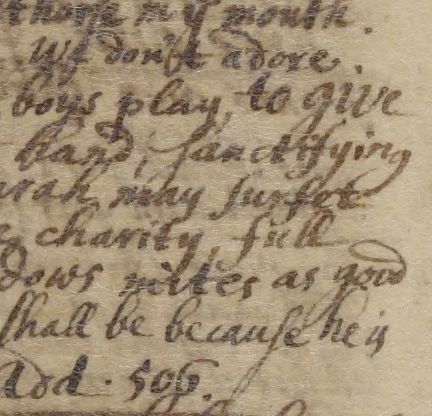 in my mouth.
don't adore.
boys play, to give
band, sanctifying
may surfet
charity, full
dows mites as good
shall be because he is
506.